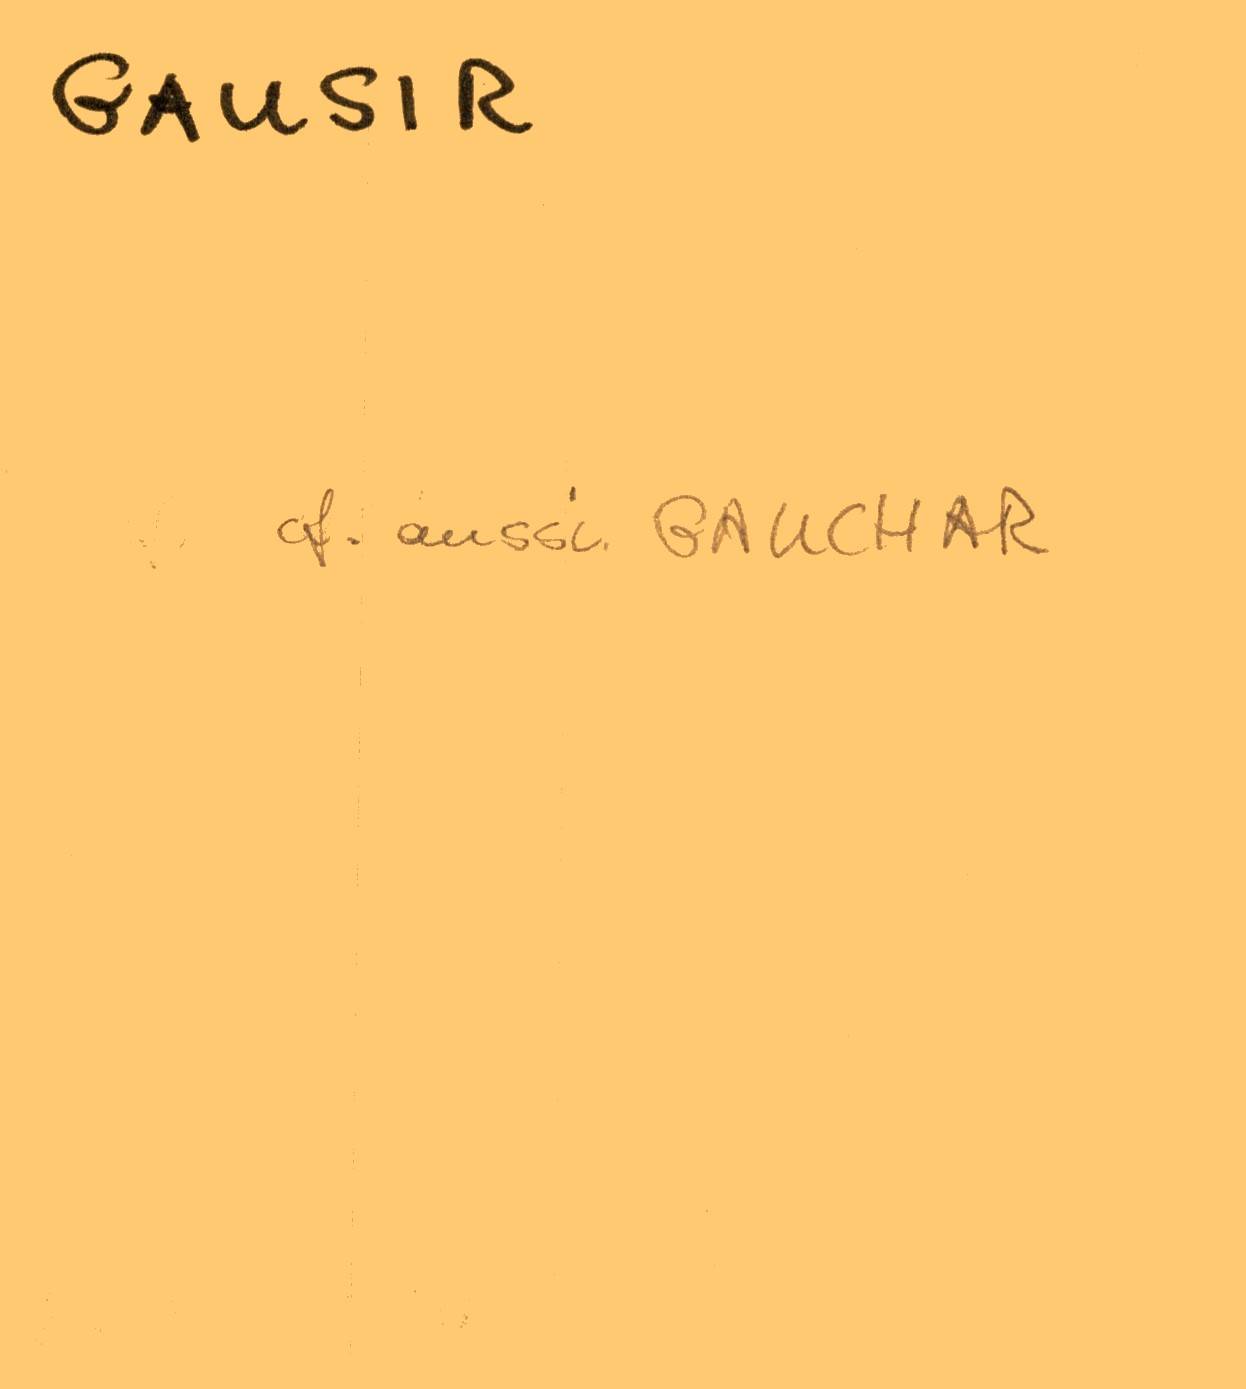 GAUSIR
cf. aussi GAUCHAR